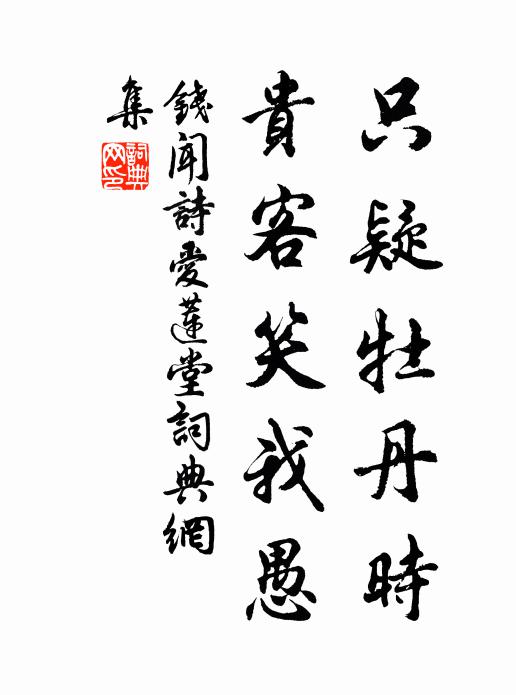 只疑牡丹時
貴客笑我愚
錢聞詩愛蓮堂詞典網
集
詞典
网印